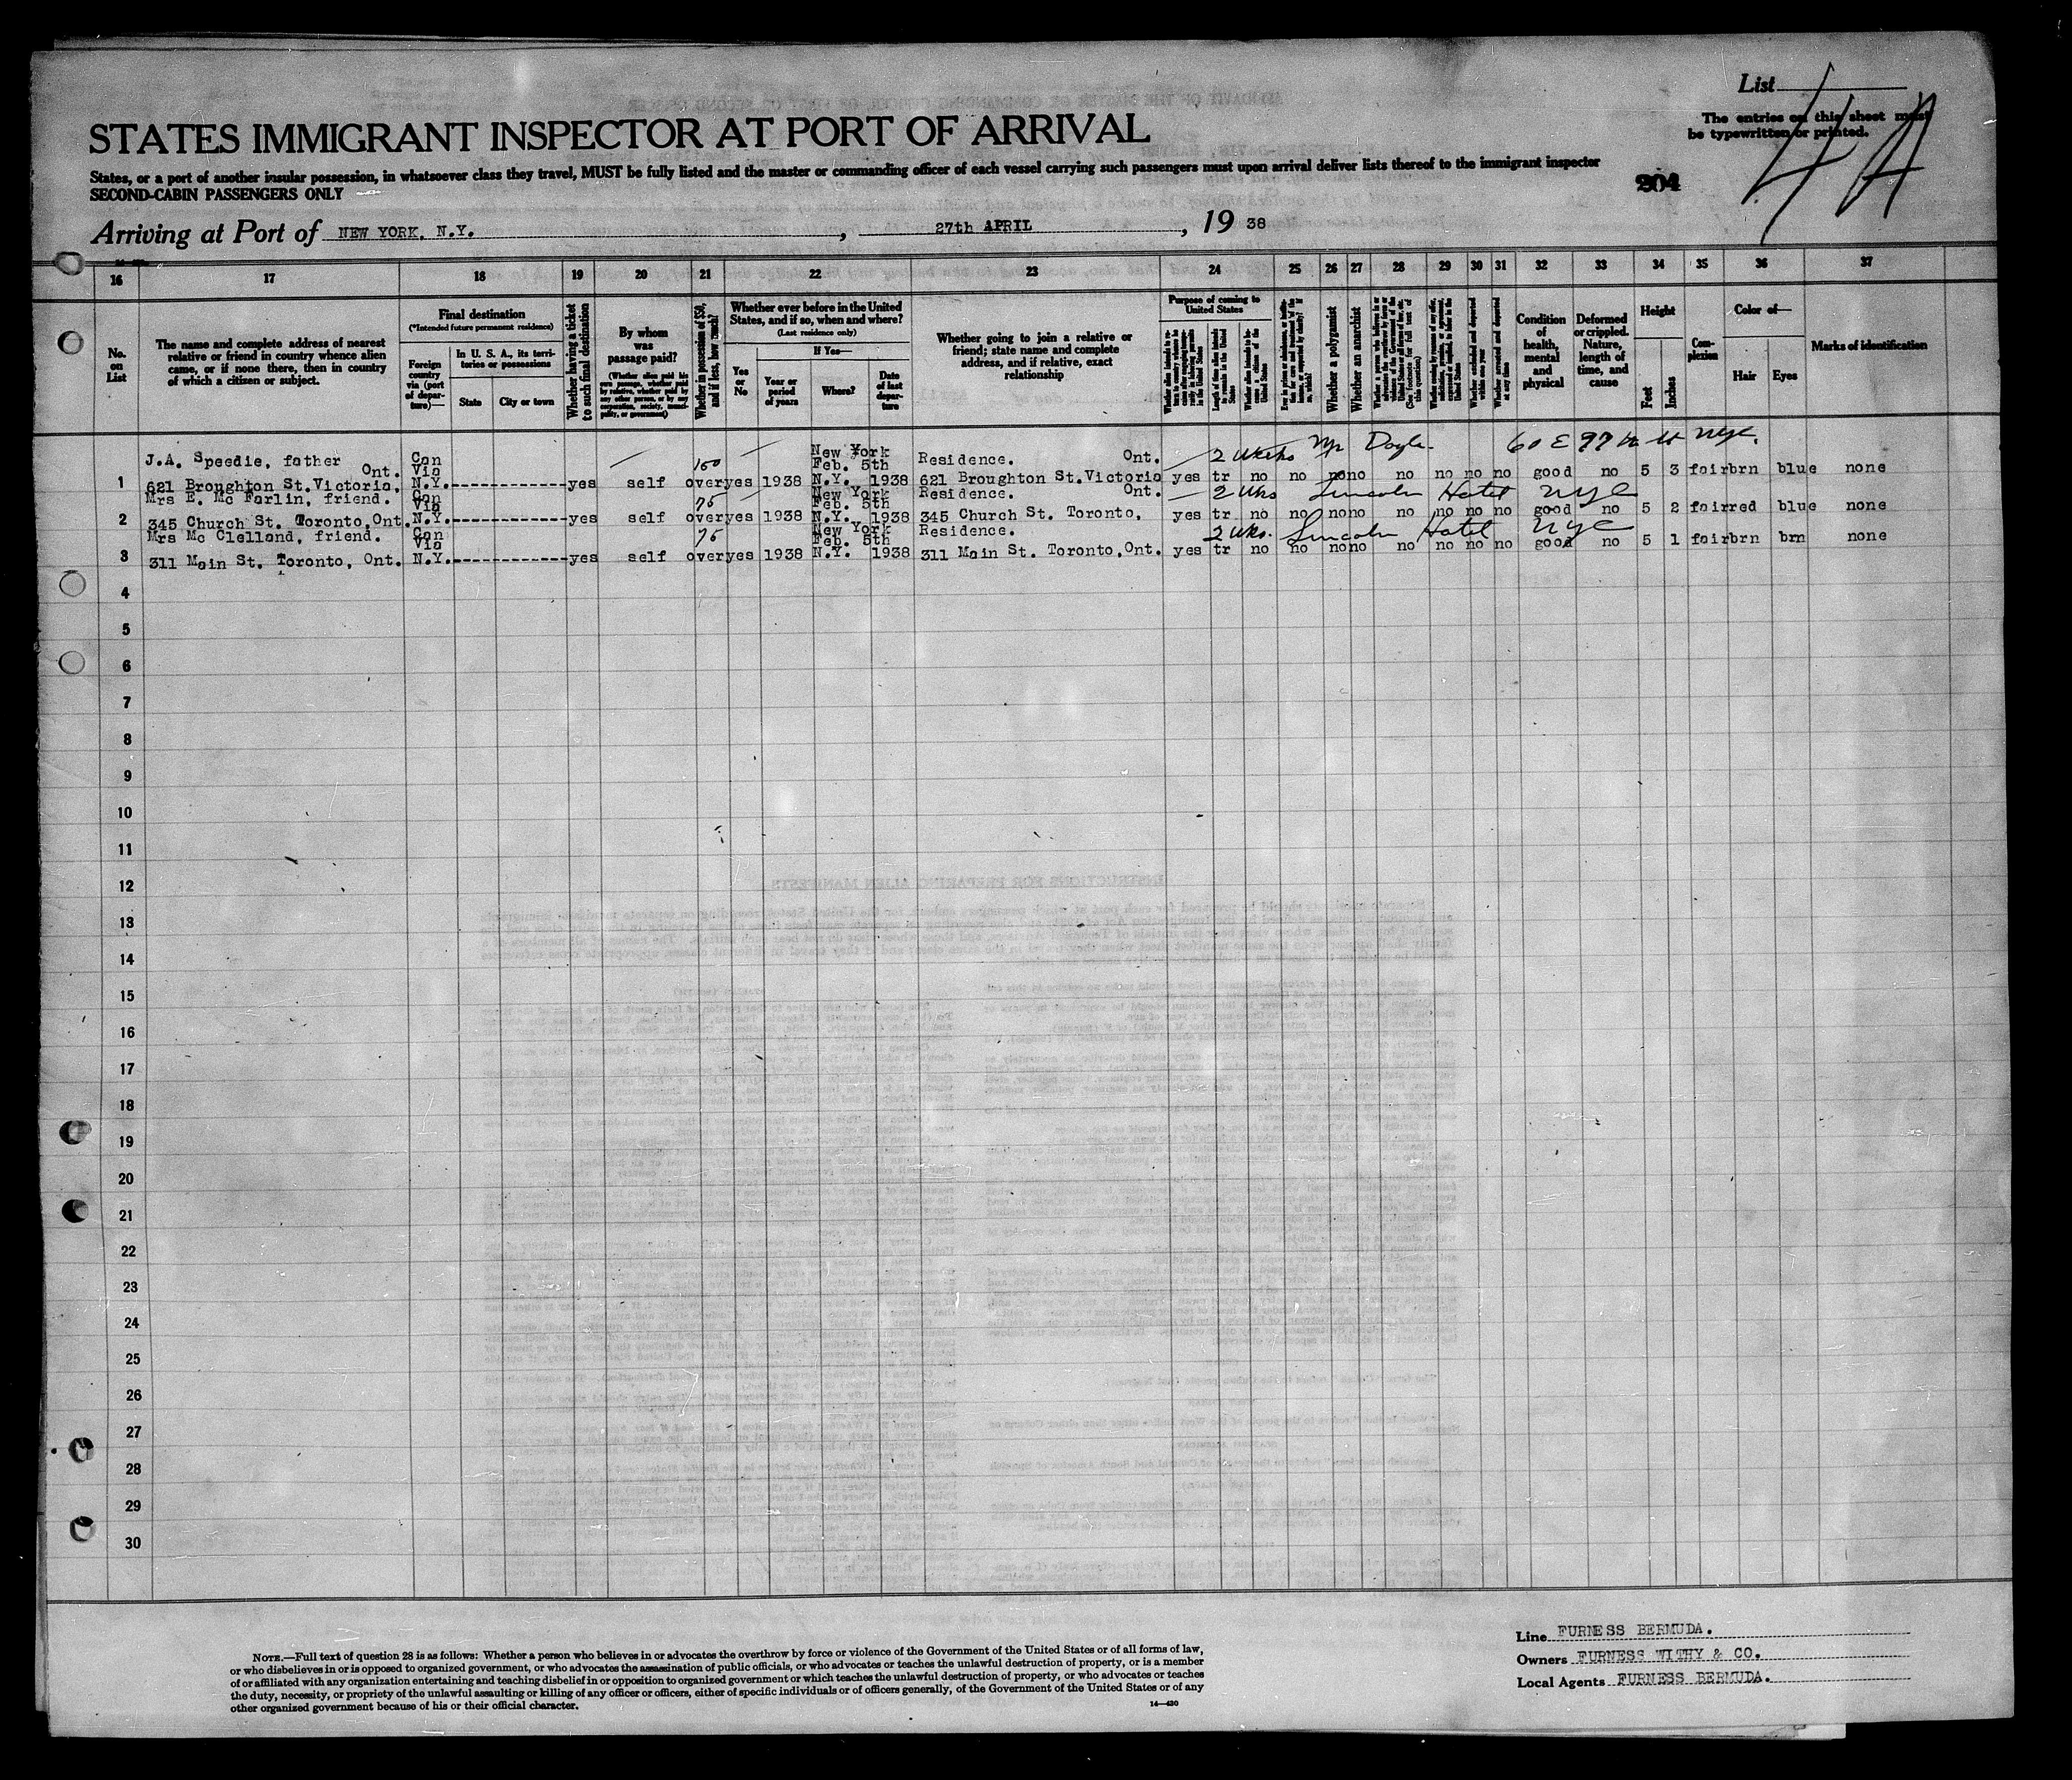 List
The entries on this sheet must
be typewritten or printed.
4A
STATES IMMIGRANT INSPECTOR AT PORT OF ARRIVAL
States, or a port of another insular possession, in whatsoever class they travel, MUST be fully listed and the master or commanding officer of each vessel carrying such passengers must upon arrival deliver lists thereof to the immigrant inspector
SECOND-CABIN PASSENGERS ONLY
204
Arriving at Port of NEW YORK, N.Y., 27th APRIL, 19 38
16 17 18 19 20 21 22 23 24 25 26 27 28 29 30 31 32 33 34 35 36 37
No. on List
The name and complete address of nearest relative or friend in country whence alien came, or if none there, then in country of which a citizen or subject.
Final destination
(*Intended future permanent residence)
Foreign country via (port of departure)—
In U. S. A., its territories or possessions
State
City or town
Whether having a ticket to such final destination
By whom was passage paid?
(Whether alien paid his own passage, whether paid by relative, whether paid by any other person, or by any corporation, society, municipality, or government)
Whether in possession of $50, and if less, how much?
Whether ever before in the United States, and if so, when and where?
(Last residence only)
If Yes—
Yes or No
Year or period of years
Where?
Date of last departure
Whether going to join a relative or friend; state name and complete address, and if relative, exact relationship
Purpose of coming to United States
Length of time alien intends to remain in the United States
Whether a polygamist
Whether an anarchist
(See footnote for full text of this question)
Whether arrested and deported at any time
Condition of health, mental and physical
Deformed or crippled. Nature, length of time, and cause
Height
Feet
Inches
Complexion
Color of—
Hair
Eyes
Marks of identification
2 weeks Mr Doyle 60 E 97 th st NYC.
J.A. Speedie, father Can 150 New York Residence. Ont.
Ont. Via Feb. 5th
1 621 Broughton St. Victoria, N.Y.------------yes self over yes 1938 N.Y. 1938 621 Broughton St. Victoria yes tr no no no no no no no no good no 5 3 fair brn blue none
Mrs E. Mc Farlin, friend. Can 75 New York Residence. Ont. 2 wks Lincoln Hotel NYC
Via Feb. 5th
2 345 Church St. Toronto, Ont. N.Y.------------yes self over yes 1938 N.Y. 1938 345 Church St. Toronto, yes tr no no no no no no no no good no 5 2 fair red blue none
Mrs Mc Clelland, friend. Can 75 New York Residence. 2 wks. Lincoln Hotel NYC
Via Feb. 5th
3 311 Main St. Toronto, Ont. N.Y.------------yes self over yes 1938 N.Y. 1938 311 Main St. Toronto, Ont. yes tr no no no no no no no no good no 5 1 fair brn brn none
4
5
6
7
8
9
10
11
12
13
14
15
16
17
18
19
20
21
22
23
24
25
26
27
28
29
30
NOTE.—Full text of question 28 is as follows: Whether a person who believes in or advocates the overthrow by force or violence of the Government of the United States or of all forms of law,
or who disbelieves in or is opposed to organized government, or who advocates the assassination of public officials, or who advocates or teaches the unlawful destruction of property, or is a member
of or affiliated with any organization entertaining and teaching disbelief in or opposition to organized government or which teaches the unlawful destruction of property, or who advocates or teaches
the duty, necessity, or propriety of the unlawful assaulting or killing of any officer or officers, either of specific individuals or of officers generally, of the Government of the United States or of any
other organized government because of his or their official character.
14—430
Line FURNESS BERMUDA.
Owners FURNESS WITHY & CO.
Local Agents FURNESS BERMUDA.